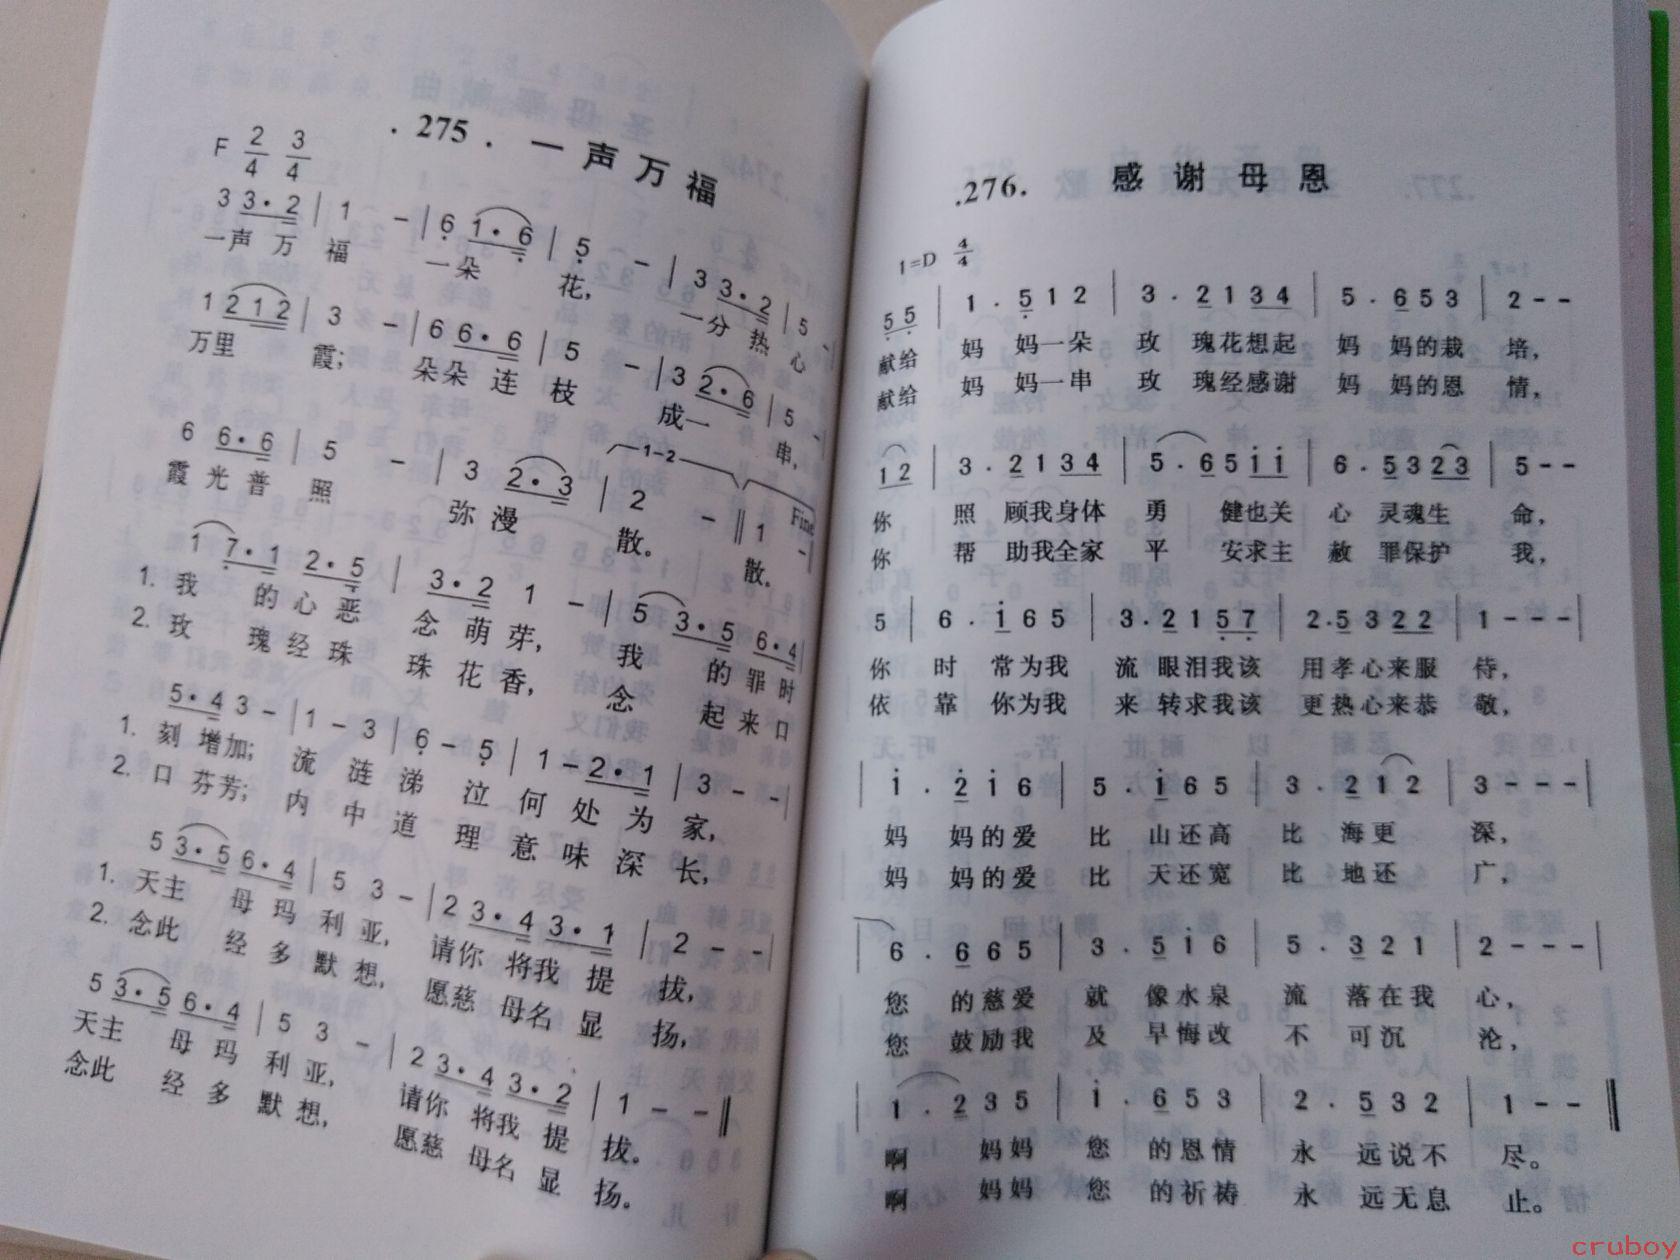 .275. 一声万福
F 2/4 3/4
3 3·2 | 1 - | 6 1·6 | 5 - | 3 3·2 | 5 -
一声 万 福 一朵 花, 一分 热 心
1 2 1 2 | 3 - | 6 6·6 | 5 - | 3 2·6 | 5 -
万里 霞; 朵朵 连 枝 成一 串,
1-2
Fine
6 6·6 | 5 - | 3 2·3 | 2 - ‖ 1 -
霞 光 普 照 弥 漫 散。 散.
1 7·1 2·5 | 3·2 1 - | 5 3·5 6·4
1. 我 的 心 恶 念 萌 芽, 我 的 罪 时
2. 玫 瑰 经 珠 珠 花 香, 念 起 来 口
5·4 3 - | 1 - 3 | 6 - 5 | 1 - 2·1 | 3 - -
1. 刻 增加; 流 涟 涕 泣 何 处 为 家,
2. 口 芬芳; 内 中 道 理 意 味 深 长,
5 3·5 6·4 | 5 3 - | 2 3·4 3·1 | 2 - -
1. 天主 母 玛 利 亚, 请你 将我 提 拔,
2. 念此 经 多 默 想, 愿慈 母名 显 扬,
5 3·5 6·4 | 5 3 - | 2 3·4 3·2 | 1 - - ‖
天主 母 玛 利 亚, 请你 将我 提 拔。
念此 经 多 默 想, 愿慈 母名 显 扬。
.276. 感谢母恩
1=D 4/4
5 5 | 1 · 5 1 2 | 3 · 2 1 3 4 | 5 · 6 5 3 | 2 - -
献给 妈 妈一朵 玫 瑰花想起 妈 妈的栽 培,
献给 妈 妈一串 玫 瑰经感谢 妈 妈的恩 情,
1 2 | 3 · 2 1 3 4 | 5 · 6 5 i i | 6 · 5 3 2 3 | 5 - -
你 照 顾我身体 勇 健也关 心 灵魂生 命,
你 帮 助我全家 平 安求主 赦 罪保护 我,
5 | 6 · i 6 5 | 3 · 2 1 5 7 | 2 · 5 3 2 2 | 1 - - - |
你 时 常为我 流 眼泪我该 用 孝心来服 侍,
依 靠 你为我 来 转求我该 更 热心来恭 敬,
| i · 2 i 6 | 5 · i 6 5 | 3 · 2 1 2 | 3 - - - |
妈 妈的爱 比 山还高 比 海更 深,
妈 妈的爱 比 天还宽 比 地还 广,
| 6 · 6 6 5 | 3 · 5 i 6 | 5 · 3 2 1 | 2 - - - |
您 的慈爱 就 像水泉 流 落在我 心,
您 鼓励我 及 早悔改 不 可沉 沦,
| 1 · 2 3 5 | i · 6 5 3 | 2 · 5 3 2 | 1 - - ‖
啊 妈妈 您 的恩情 永 远说不 尽。
啊 妈妈 您 的祈祷 永 远无息 止。
cruboy